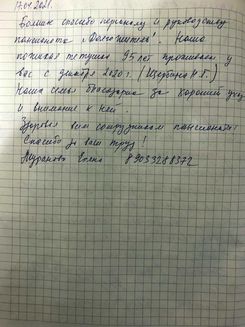 17.04.2021.
Большое спасибо персоналу и руководству
пансионата "Долгожитель". Наша
пожилая тетушка 95 лет проживает у
вас с января 2020 г. (Щербина Н. Г.)
Наша семья благодарна за хороший уход
и внимание к ней
Здоровья всем сотрудникам пансионата!
Спасибо за ваш труд!
Муранова Елена 89033288372